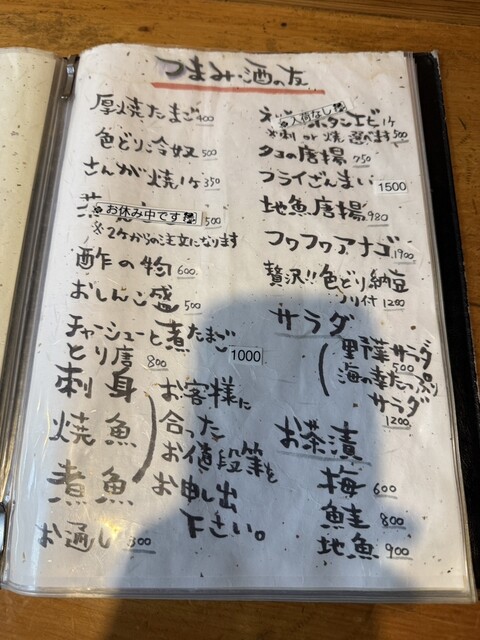 つまみ・酒の友
厚焼たまご 400
色どり冷奴 500
さんが焼 1ケ 350
お休み中です
500
※2ケからの注文になります
酢の物 600
おしんこ盛 500
チャーシューと煮たまご 1000
とり唐 800
刺身
焼魚
煮魚
お客様に
合った
お値段等を
お申し出
下さい。
お通し 300
入荷なし
ボタンエビ 1ケ
※刺 or 焼 選べます 500
タコの唐揚 750
フライざんまい 1500
地魚唐揚 980
フワフワアナゴ 1900
贅沢!! 色どり納豆
ノリ付 1200
サラダ
野菜サラダ
500
海の幸たっぷり
サラダ
1200
お茶漬
梅 600
鮭 800
地魚 900